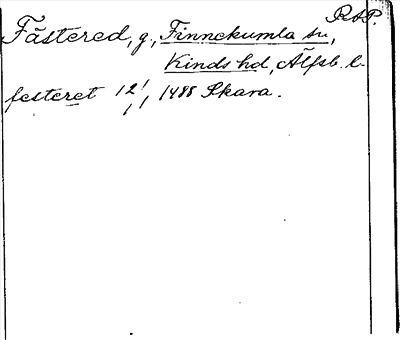 RAP.
Fästered, g., Finnekumla sn,
Kinds hd, Älfsb. l.
festeret 12/1 1488 Skara.